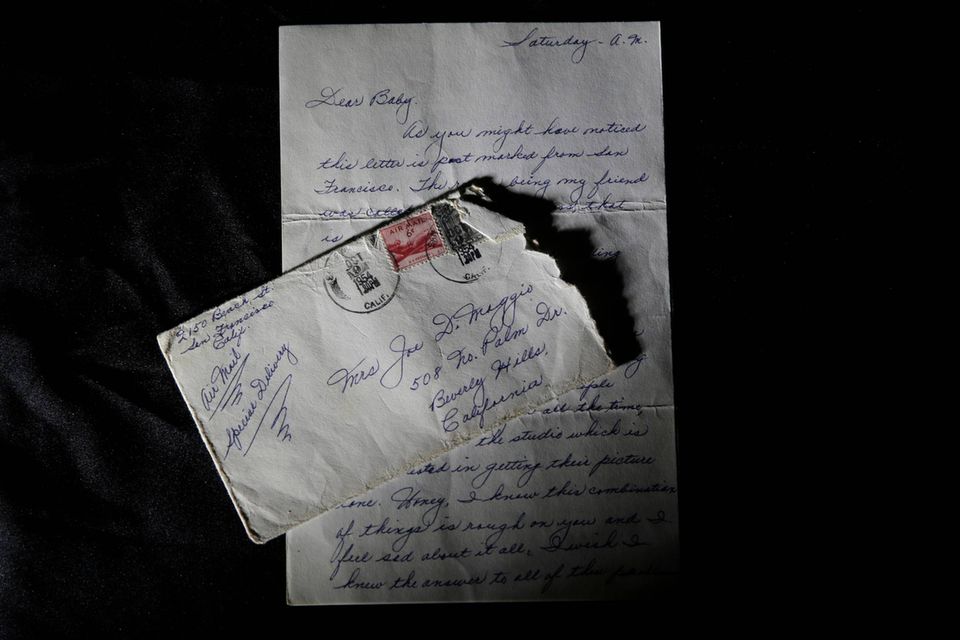 Saturday - A.M.
Dear Baby,
As you might have noticed
this letter is post marked from San
Francisco. The being my friend
was that
is
2150 Beach St.
San Francisco
Calif.
Air Mail
Special Delivery
AIR MAIL
6¢
OCT
1954
CALIF.
1954
CALIF.
Mrs Joe D. Maggio
508 No. Palm Dr.
Beverly Hills,
California
all the time,
the studio which is
in getting their picture
Honey, I know this combination
of things is rough on you and I
feel sad about it all, I wish I
knew the answer to all of